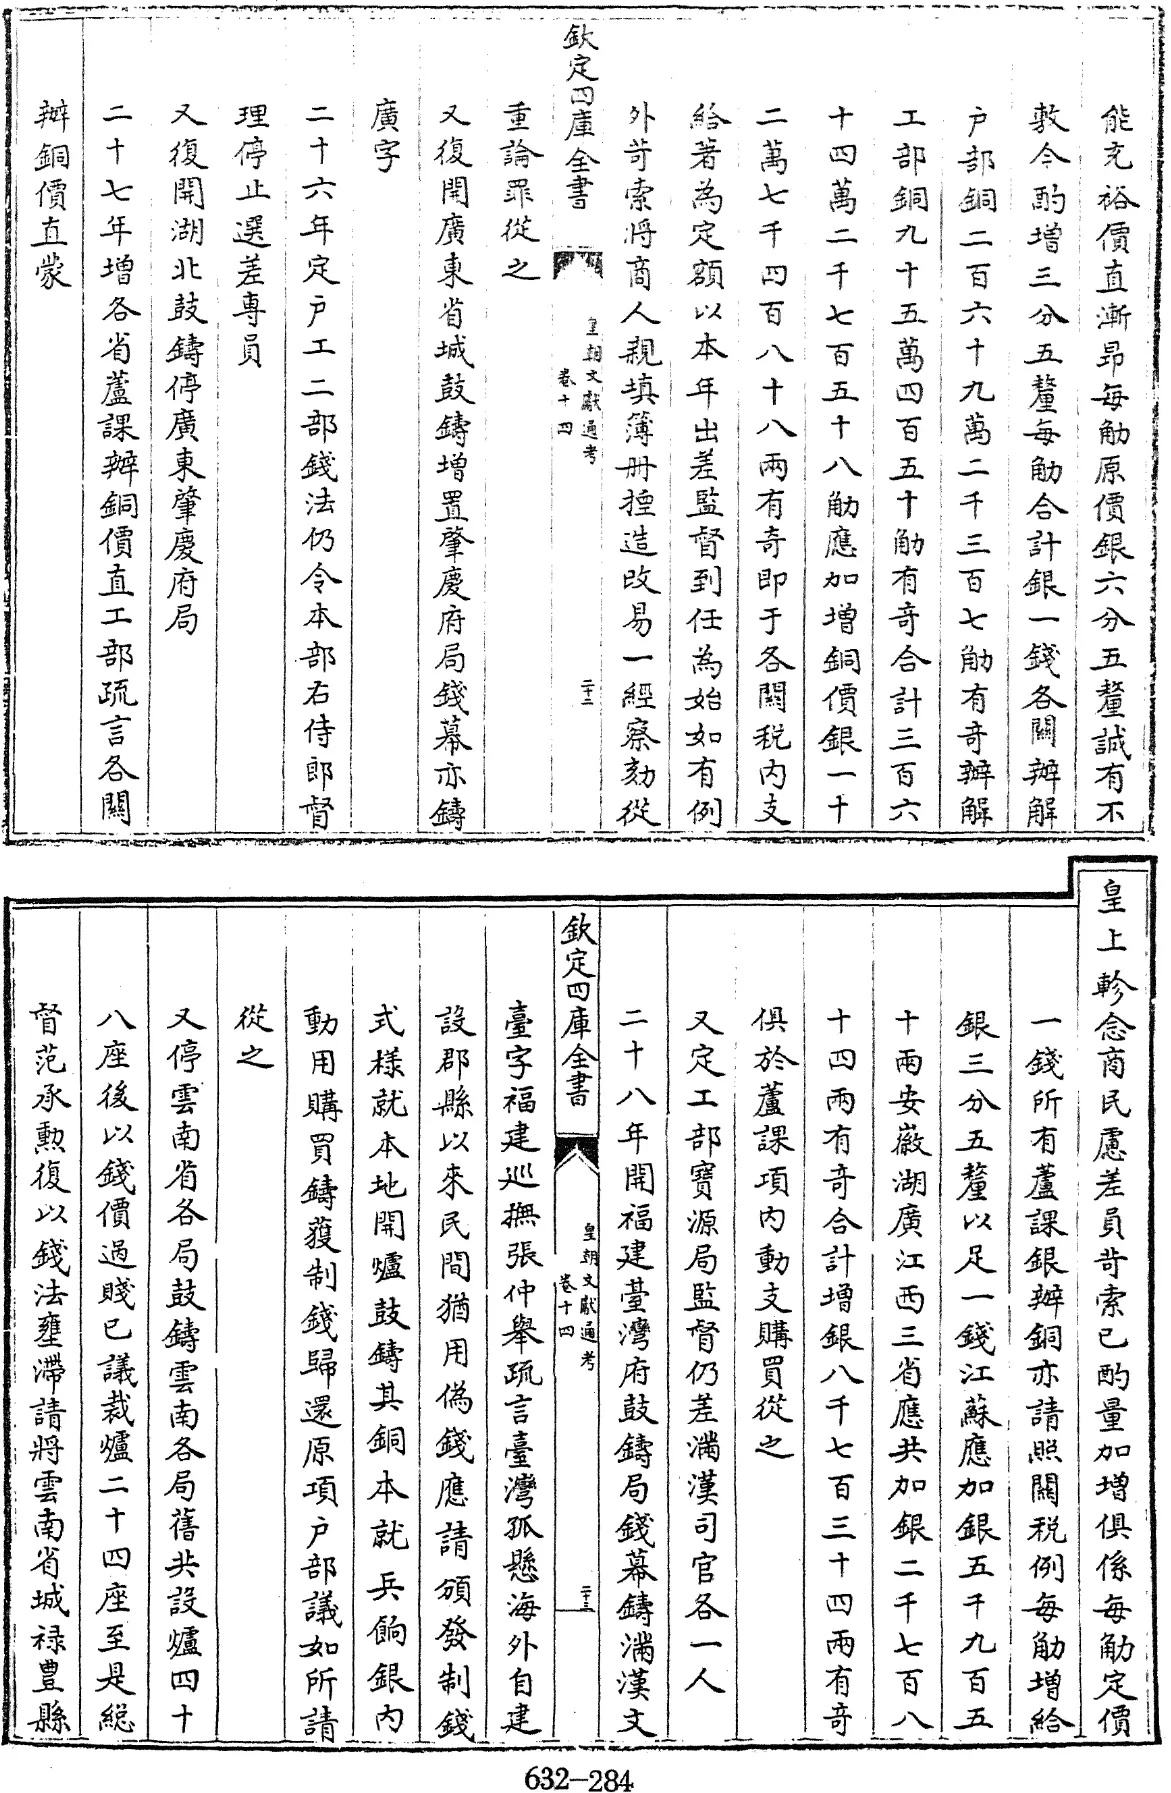 能充裕價直漸昂每觔原價銀六分五釐誠有不
敷今酌增三分五釐每觔合計銀一錢各關辦解
户部銅二百六十九萬二千三百七觔有奇辦解
工部銅九十五萬四百五十觔有奇合計三百六
十四萬二千七百五十八觔應加增銅價銀一十
二萬七千四百八十八兩有奇即于各關税内支
給著為定額以本年出差監督到任為始如有例
外苛索將商人親填簿冊捏造改易一經察劾從
欽定四庫全書
皇朝文獻通考
卷十四
二十三
重論罪從之
又復開廣東省城鼓鑄增置肇慶府局錢幕亦鑄
廣字
二十六年定户工二部錢法仍令本部右侍郎督
理停止選差專員
又復開湖北鼓鑄停廣東肇慶府局
二十七年增各省蘆課辦銅價直工部疏言各關
辦銅價直蒙
皇上軫念商民慮差員苛索已酌量加增俱係每觔定價
一錢所有蘆課銀辦銅亦請照關税例每觔增給
銀三分五釐以足一錢江蘇應加銀五千九百五
十兩安徽湖廣江西三省應共加銀二千七百八
十四兩有奇合計增銀八千七百三十四兩有奇
俱於蘆課項内動支購買從之
又定工部寶源局監督仍差滿漢司官各一人
二十八年開福建臺灣府鼓鑄局錢幕鑄滿漢文
欽定四庫全書
皇朝文獻通考
卷十四
二十三
臺字福建巡撫張仲舉疏言臺灣孤懸海外自建
設郡縣以來民間猶用偽錢應請頒發制錢
式樣就本地開爐鼓鑄其銅本就兵餉銀内
動用購買鑄獲制錢歸還原項户部議如所請
從之
又停雲南省各局鼓鑄雲南各局舊共設爐四十
八座後以錢價過賤已議裁爐二十四座至是總
督范承勲復以錢法壅滯請將雲南省城禄豐縣
632-284